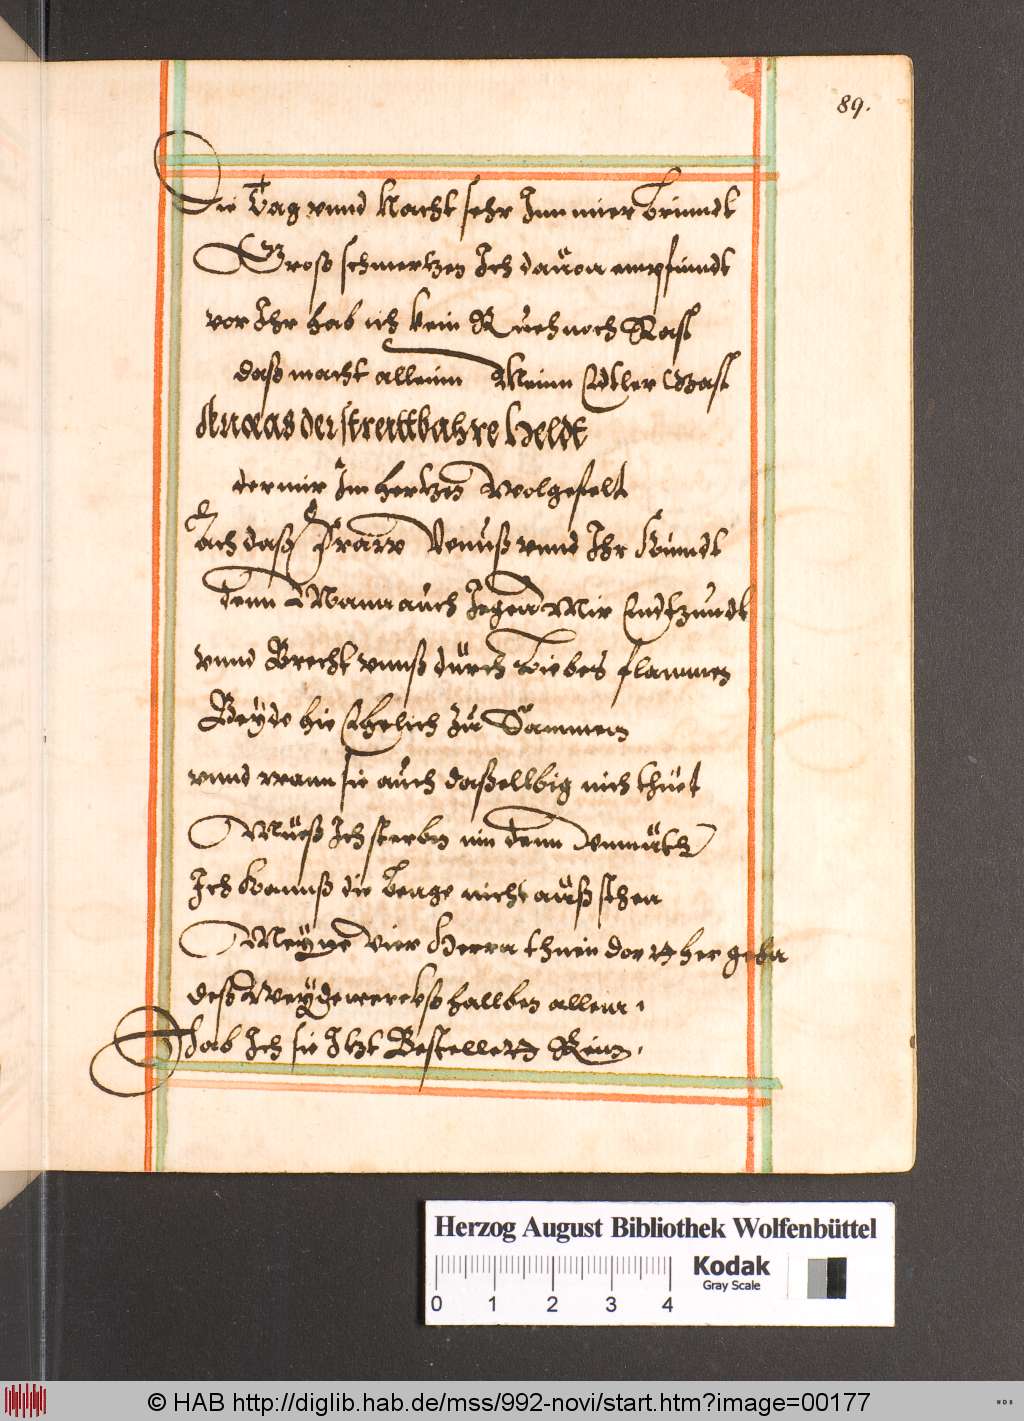 89.
Die Tag vnnd Nacht sehr Inn mier brinndt
Gross schmertzen Ich dauon empfindt
vor Ihr hab ich kein Rueh noch Rast
dass macht alleinn Meinn Edler Gast
Aneas der streittbahre Heldt
der mir Im hertzen wolgefelt
Ach dass Fraw Venuß vnnd Ihr Kinndt
denn Mann auch Jegen Mir Endtzundt
vnnd Brecht vnnß durch Liebes flammen
Beyde hie Ehelich zu Sammen
vnnd wann sie auch daßellbig nich thuet
Mueß Ich sterben inn denn Vnmuth
Ich kannß die lenge nicht auß sthen
Meyne vier Herrn thuen dortt her gehn
deß Weydewerckß hallben allein
Hab Ich sie Itzt Bestellett Rein.
Herzog August Bibliothek Wolfenbüttel
Kodak
Gray Scale
0 1 2 3 4
© HAB http://diglib.hab.de/mss/992-novi/start.htm?image=00177